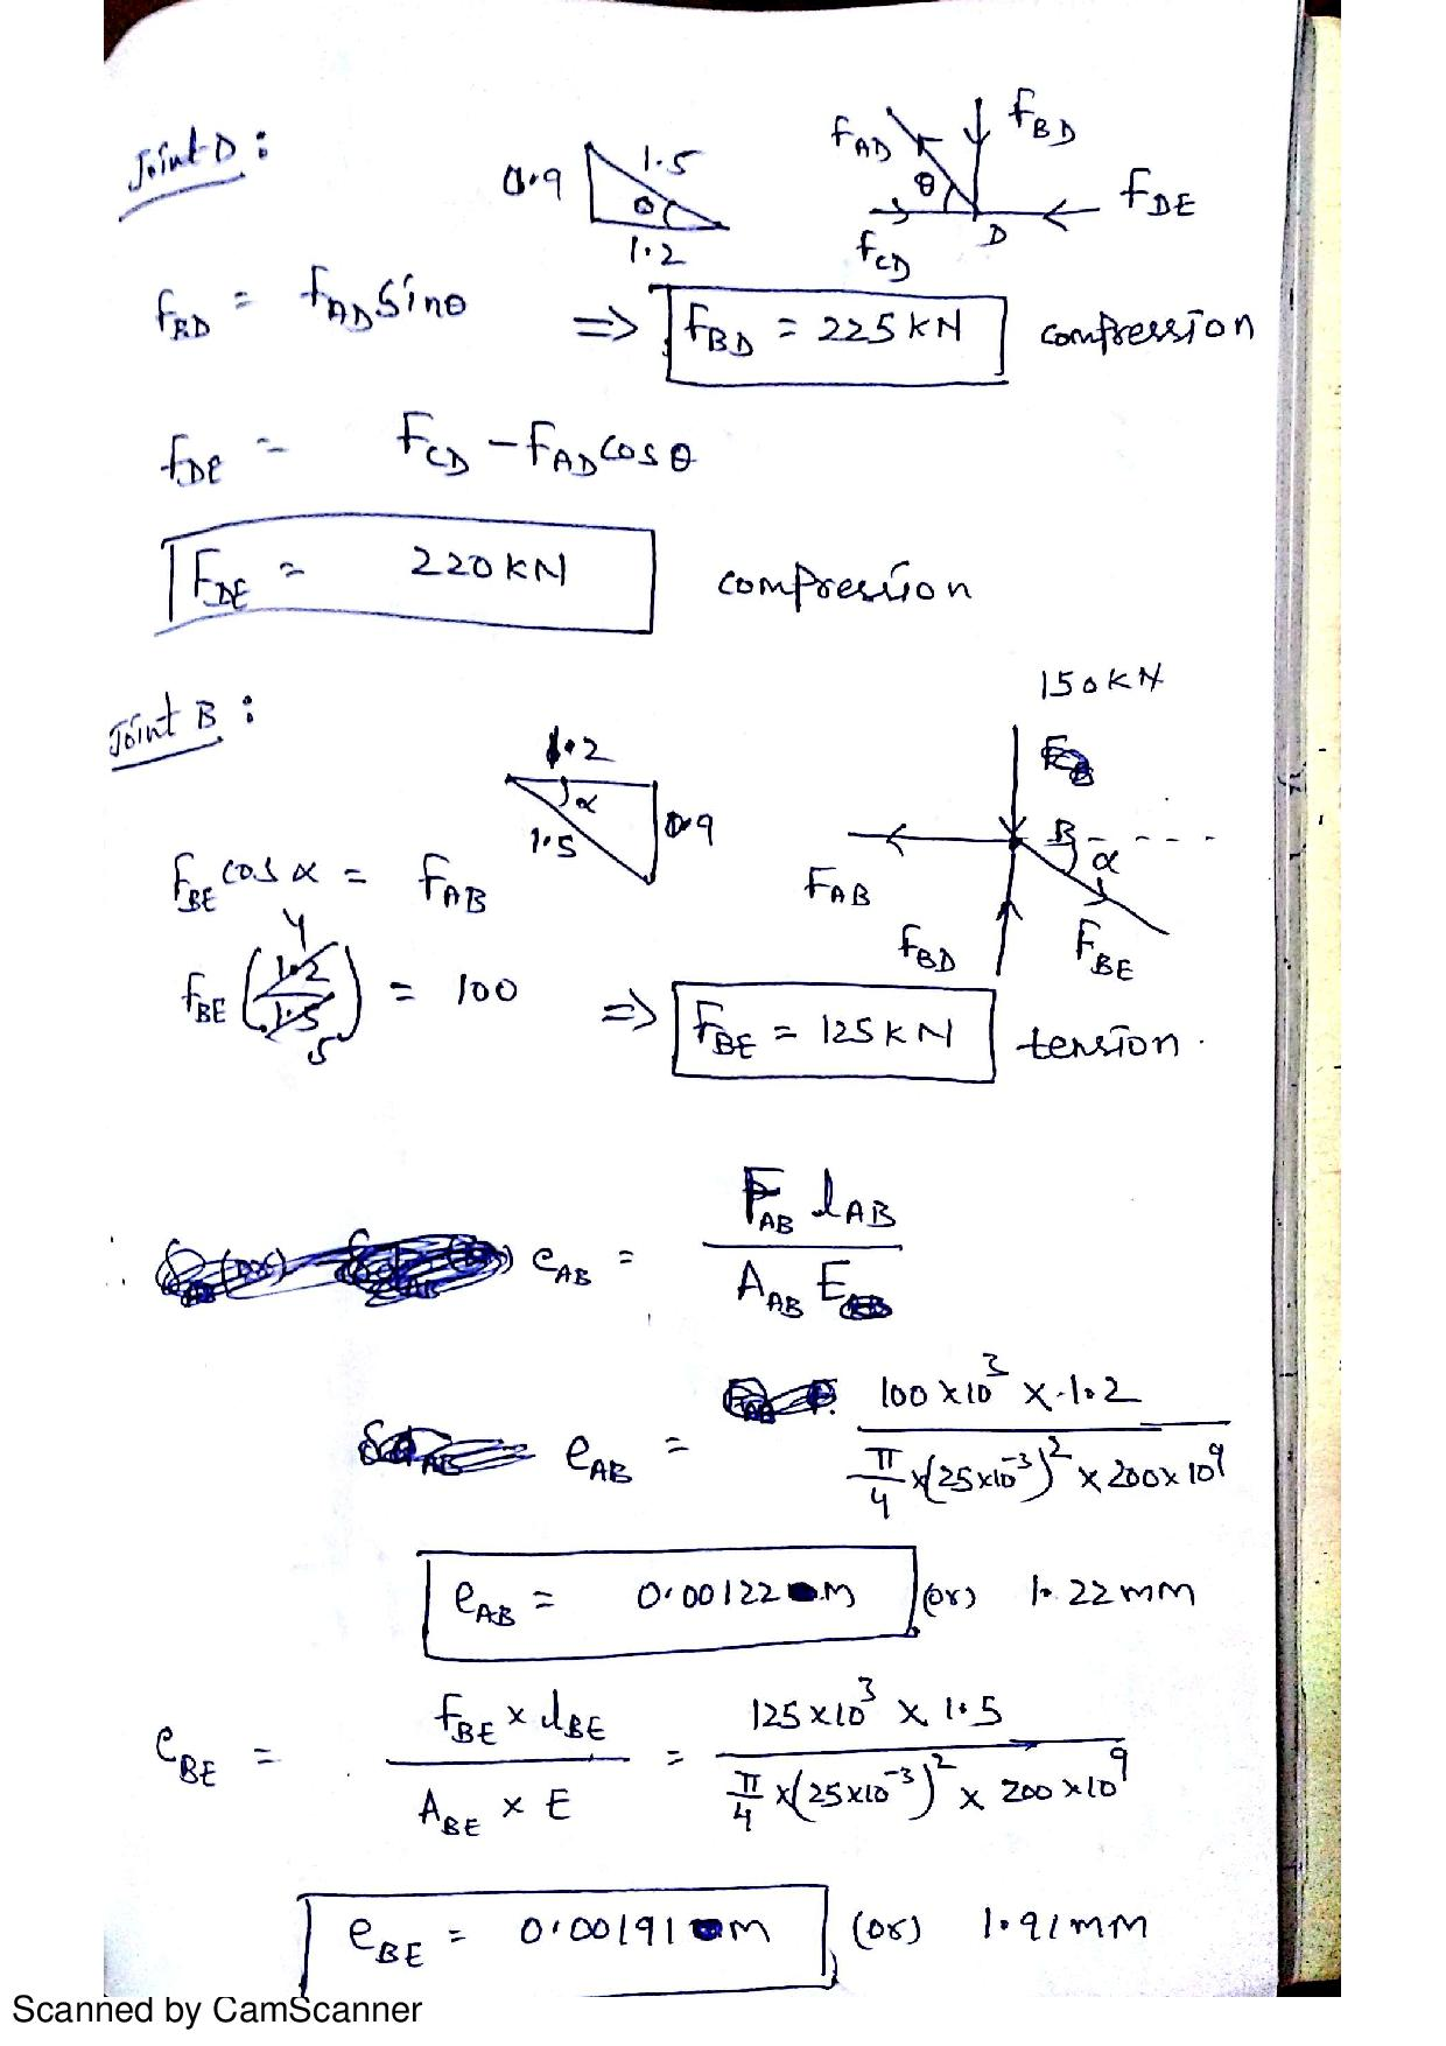 Joint D :
0.9 1.5 θ 1.2
FAD FBD θ FDE FCD D
FBD = FAD Sinθ => FBD = 225 KN compression
FDE = FCD - FAD cosθ
FDE = 220 KN compression
Joint B :
150 KN
1.2 α 1.5 0.9
B α FAB FBD FBE
FBE cos α = FAB
FBE (1.2/1.5) 4 5 = 100 => FBE = 125 KN tension.
eAB = FAB lAB / AAB E
eAB = 100 x 10^3 x 1.2 / π/4 x (25x10^-3)^2 x 200x10^9
eAB = 0.00122 m (or) 1.22 mm
eBE = FBE x lBE / ABE x E = 125 x 10^3 x 1.5 / π/4 x (25x10^-3)^2 x 200 x 10^9
eBE = 0.00191 m (or) 1.91 mm
Scanned by CamScanner